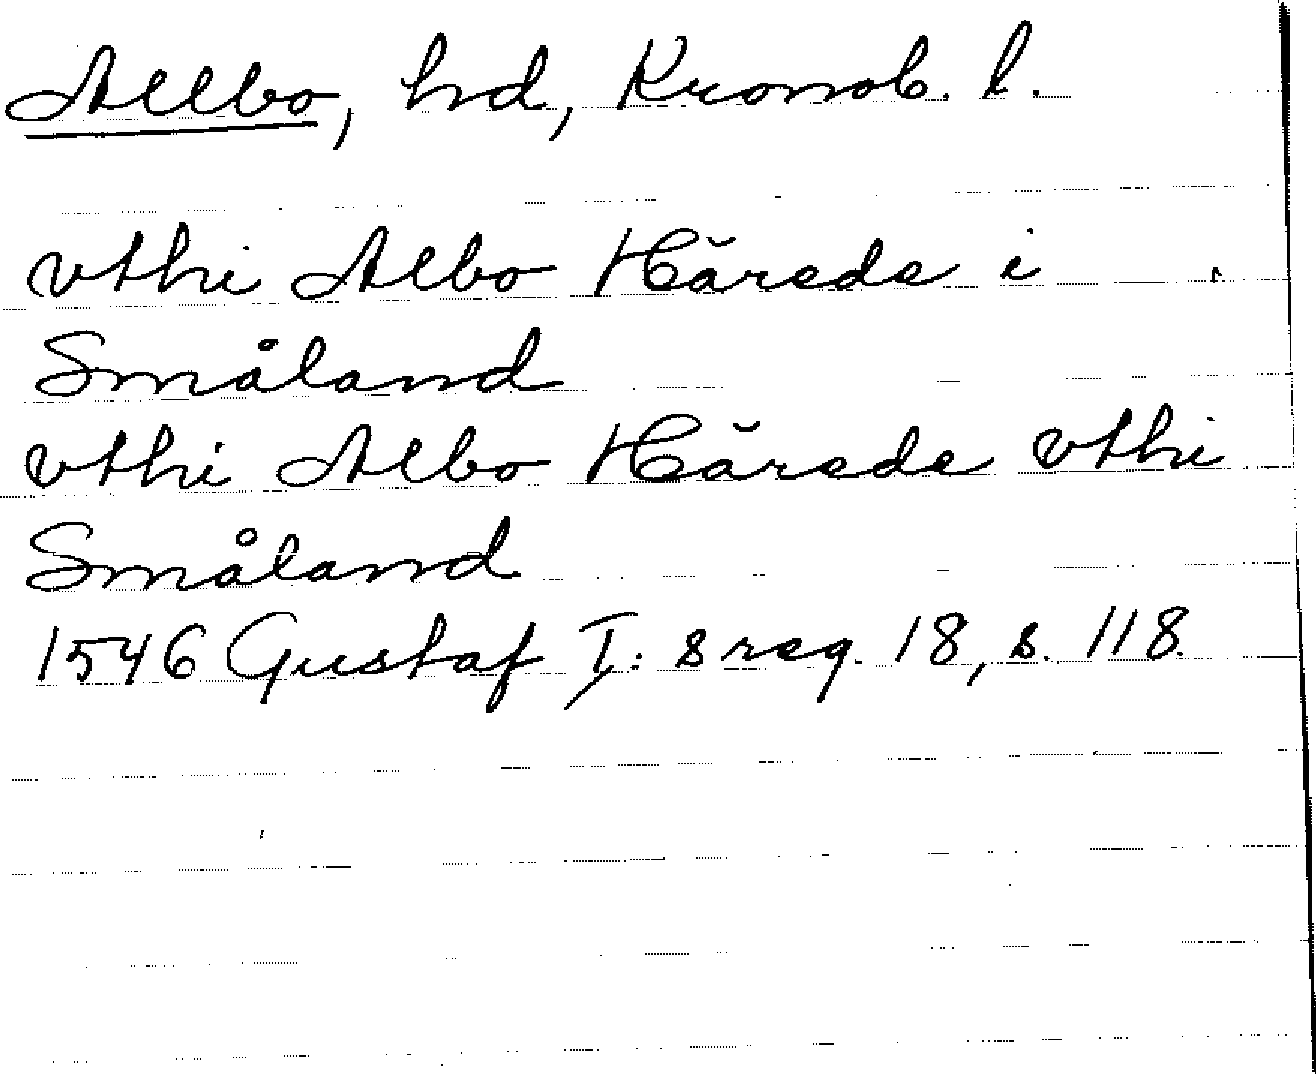 Allbo, hd, Kronob. l.
vthi Albo Hărede i
Småland
vthi Albo Hărede vthi
Småland
1546 Gustaf I: s reg. 18, s. 118.